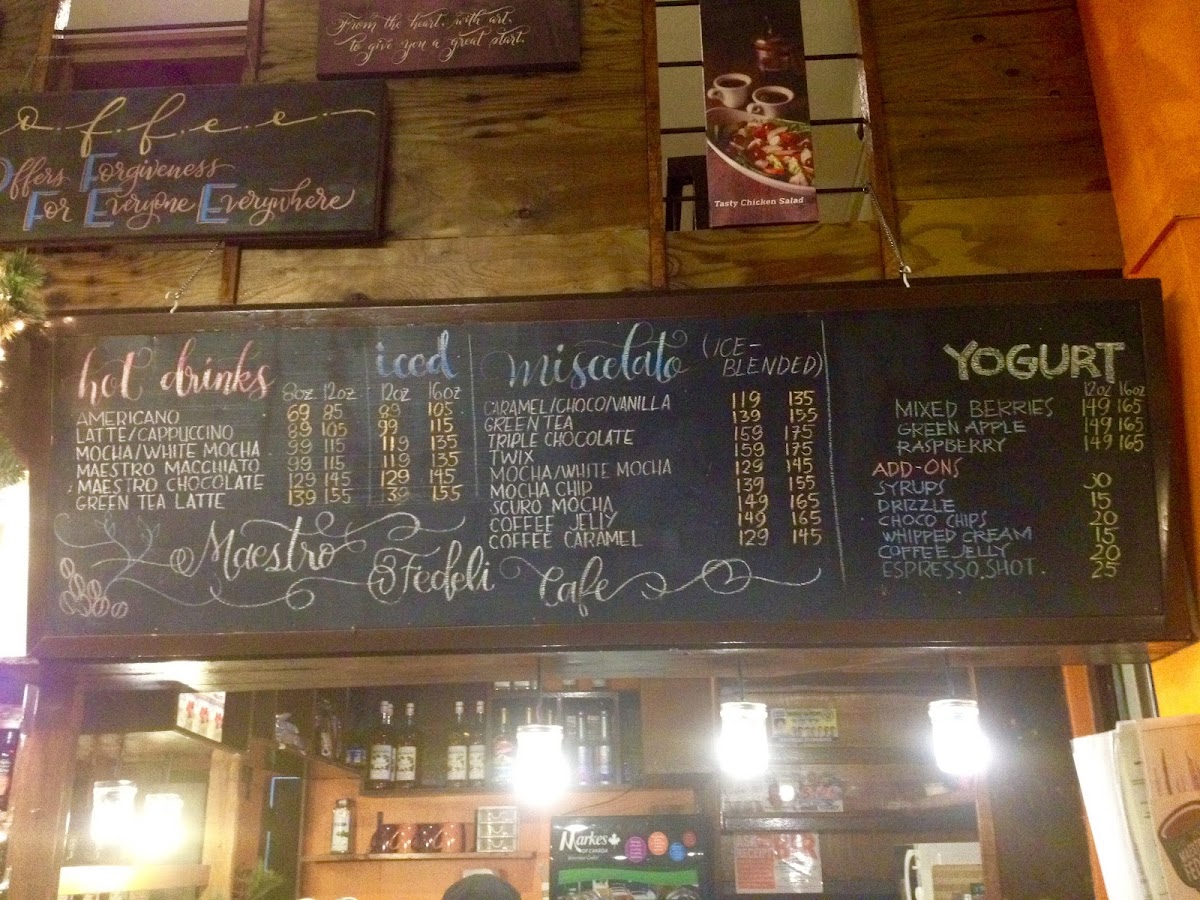 From the heart, with art,
to give you a great start.
offee
Offers Forgiveness
For Everyone Everywhere
Tasty Chicken Salad
hot drinks iced
8oz 12oz 12oz 16oz
AMERICANO 69 85 89 105
LATTE/CAPPUCCINO 89 105 99 115
MOCHA/WHITE MOCHA 99 115 119 135
MAESTRO MACCHIATO 99 115 119 135
MAESTRO CHOCOLATE 129 145 129 145
GREEN TEA LATTE 139 155 39 155
miscelato (ICE-
BLENDED)
CARAMEL/CHOCO/VANILLA 119 135
GREEN TEA 139 155
TRIPLE CHOCOLATE 159 175
TWIX 159 175
MOCHA/WHITE MOCHA 129 145
MOCHA CHIP 139 155
SCURO MOCHA 149 165
COFFEE JELLY 149 165
COFFEE CARAMEL 129 145
YOGURT
12oz 16oz
MIXED BERRIES 149 165
GREEN APPLE 149 165
RASPBERRY 149 165
ADD-ONS
SYRUPS 30
DRIZZLE 15
CHOCO CHIPS 20
WHIPPED CREAM 15
COFFEE JELLY 20
ESPRESSO SHOT. 25
Maestro Fedeli Cafe
Markes
OF CANADA